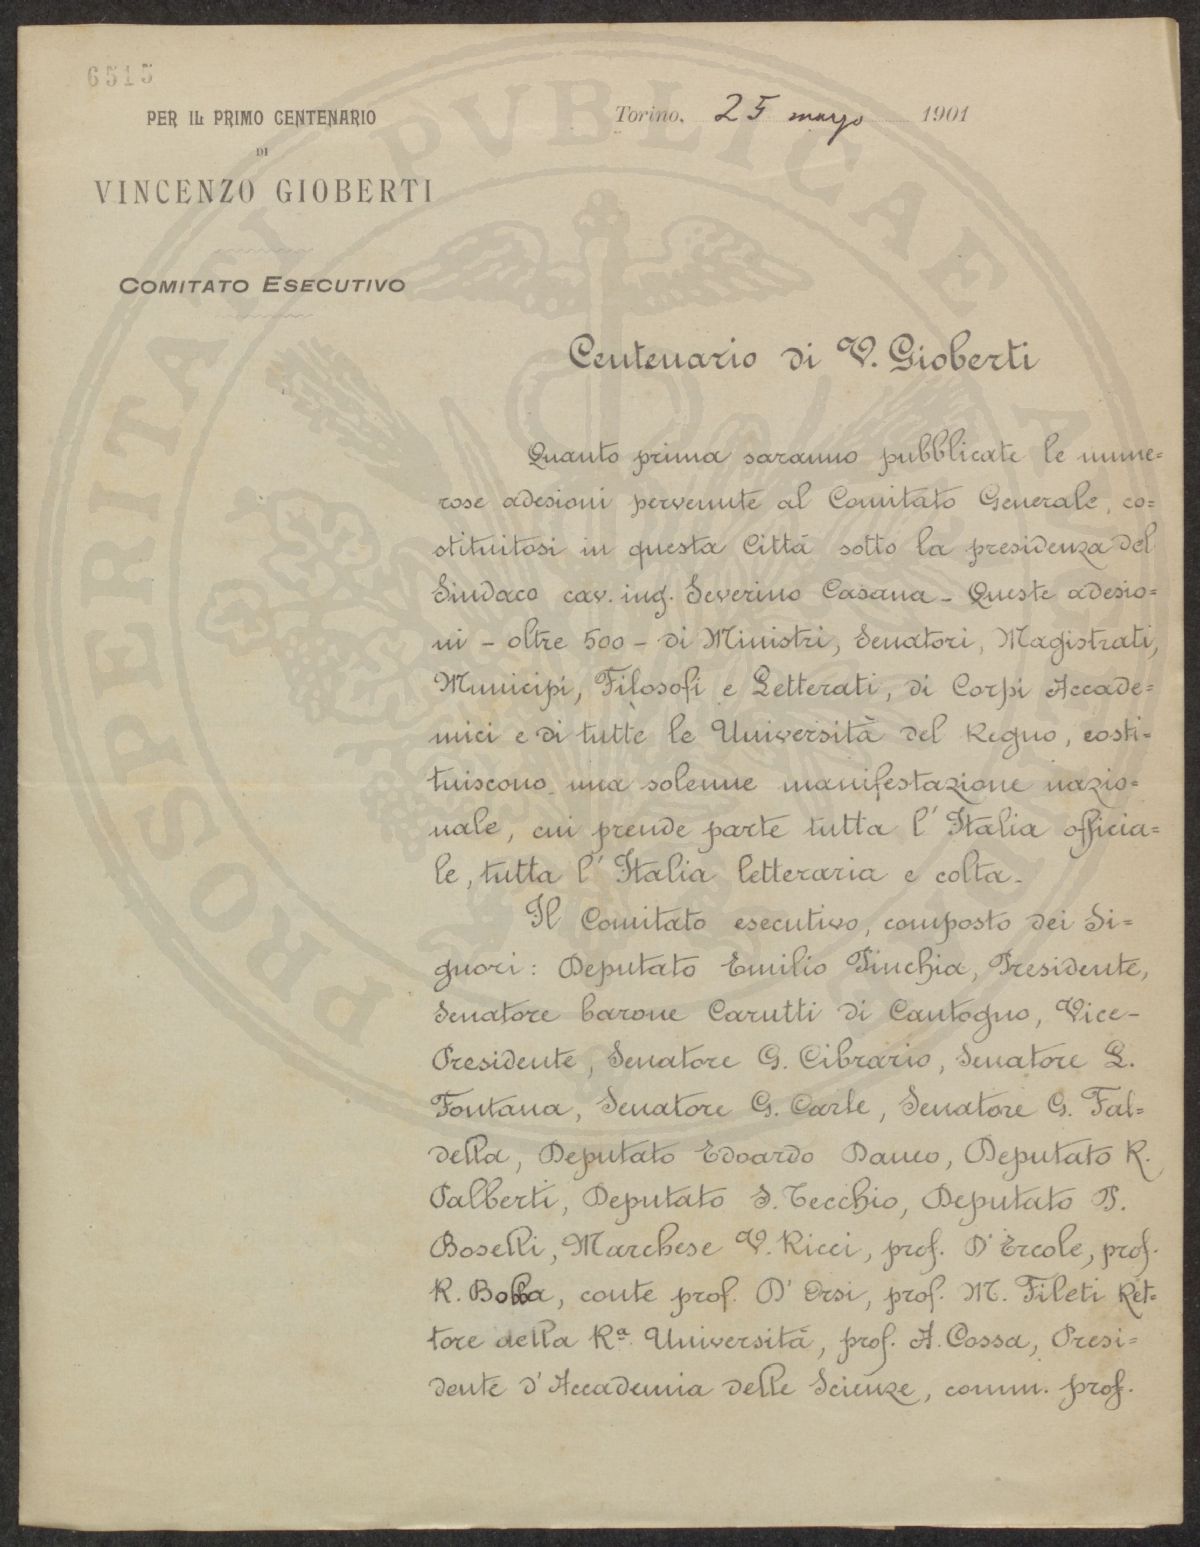 6515
PER IL PRIMO CENTENARIO
DI
VINCENZO GIOBERTI
COMITATO ESECUTIVO
Torino, 25 marzo 1901
Centenario di V. Gioberti
Quanto prima saranno pubblicate le nume=
rose adesioni pervenute al Comitato Generale, co=
stituitosi in questa Città sotto la presidenza del
Sindaco cav. ing. Severino Casana - Queste adesio=
ni - oltre 500 - di Ministri, Senatori, Magistrati,
Municipi, Filosofi e Letterati, di Corpi Accade=
mici e di tutte le Università del Regno, costi-
tuiscono una solenne manifestazione nazio=
nale, cui prende parte tutta l'Italia officia=
le, tutta l'Italia letteraria e colta.
Il Comitato esecutivo, composto dei Si=
gnori: Deputato Emilio Pinchia, Presidente,
Senatore barone Carutti di Cantogno, Vice-
Presidente, Senatore G. Cibrario, Senatore L.
Fontana, Senatore G. Carle, Senatore G. Fal=
della, Deputato Edoardo Daneo, Deputato R.
Palberti, Deputato S. Tecchio, Deputato P.
Boselli, Marchese V. Ricci, prof. D'Ercole, prof.
R. Bobba, conte prof. D'Orsi, prof. M. Fileti Ret=
tore della Rª Università, prof. A. Cossa, Presi=
dente d'Accademia delle Scienze, comm. prof.
PROSPERITATI PVBLICAE